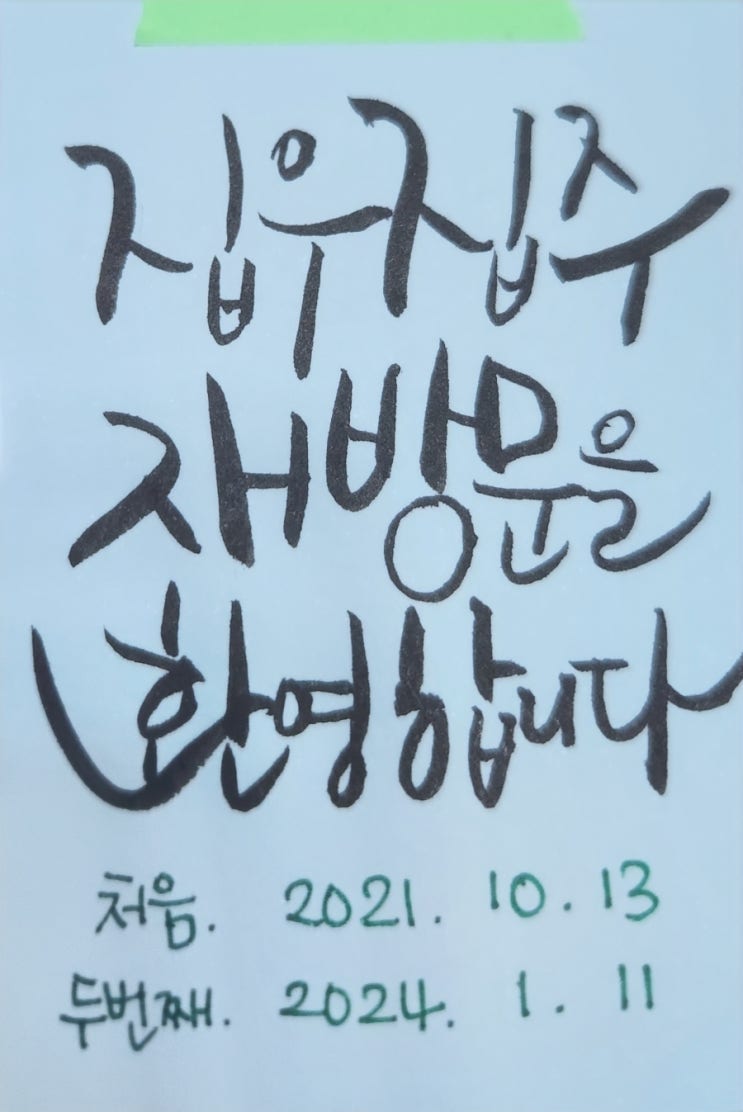 집우집주
재방문을
환영합니다
처음. 2021. 10. 13
두번째. 2024. 1. 11